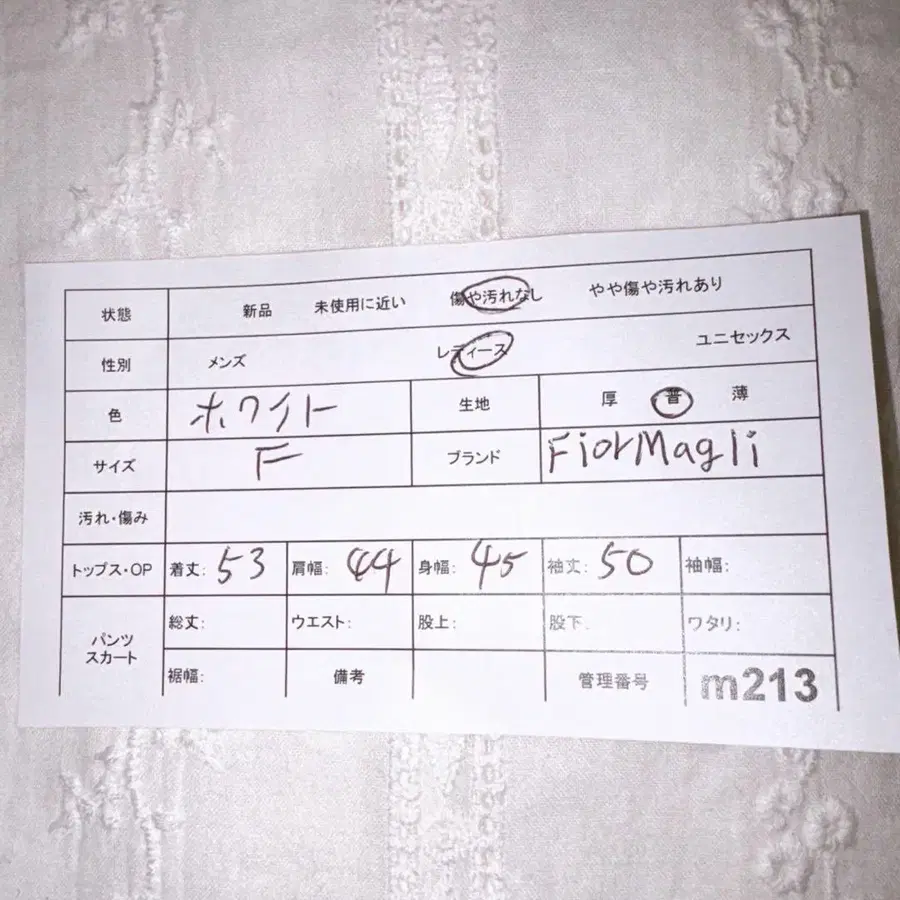 状態 新品 未使用に近い 傷や汚れなし やや傷や汚れあり
性別 メンズ レディース ユニセックス
色 ホワイト 生地 厚 普 薄
サイズ F ブランド FiorMagli
汚れ・傷み
トップス・OP 着丈: 53 肩幅: 44 身幅: 45 袖丈: 50 袖幅:
パンツ スカート 総丈: ウエスト: 股上: 股下: ワタリ:
裾幅: 備考 管理番号 m213